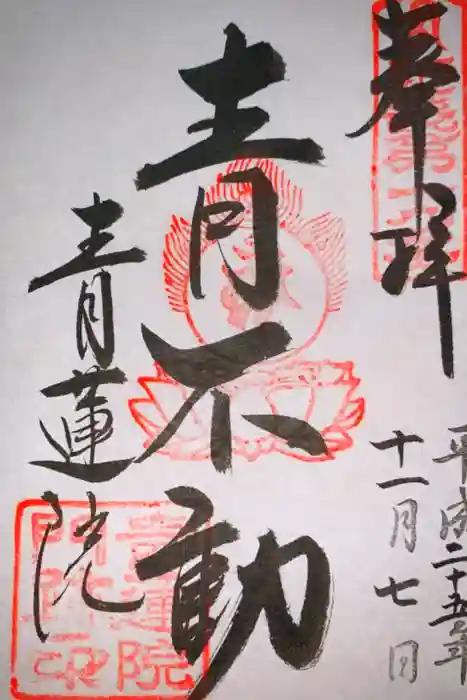 奉拝
平成二十五年
十一月七日
青不動
青蓮院